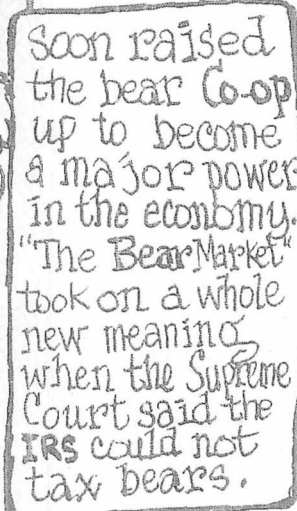 Soon raised
the bear Co-op
up to become
a major power
in the economy.
"The Bear Market"
took on a whole
new meaning
when the Supreme
Court said the
IRS could not
tax bears.